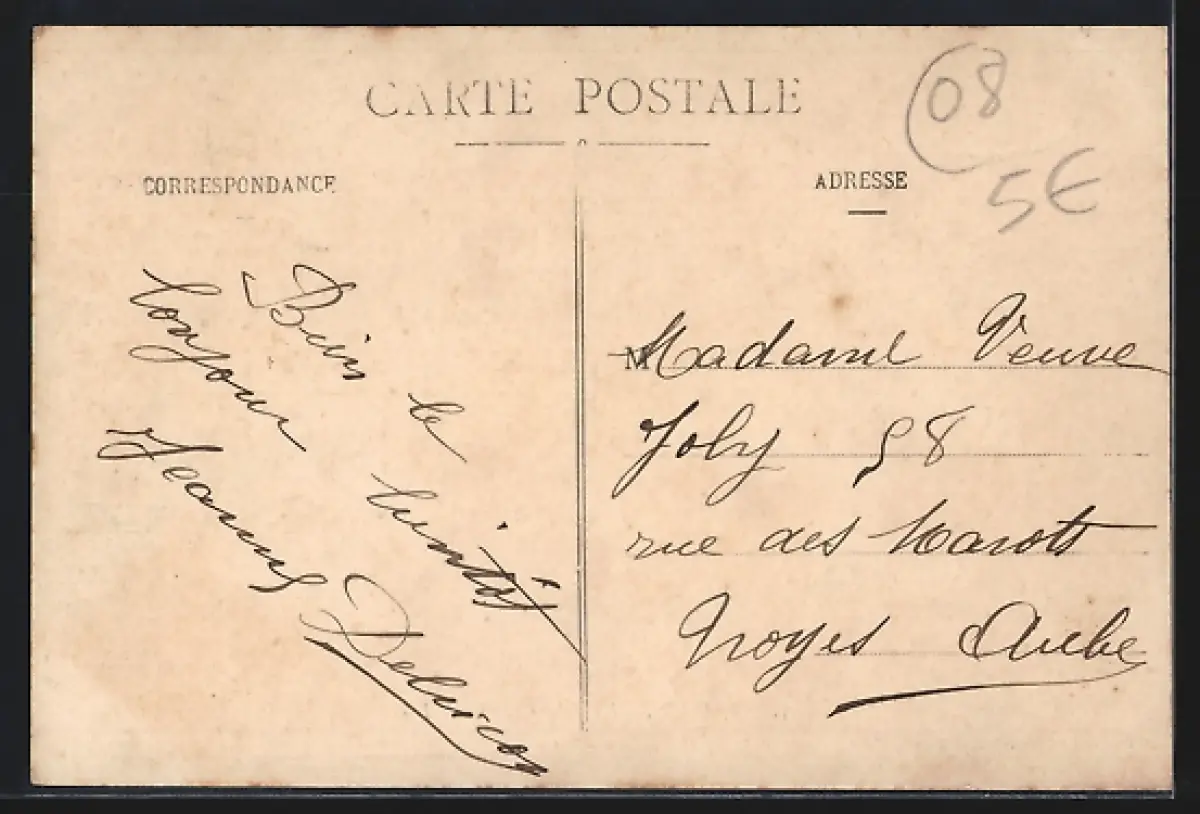 CARTE POSTALE
CORRESPONDANCE
ADRESSE
08
5€
Bien le
bonjour
bientôt
Jeanne
Madame Veuve
Joly 58
rue des Marots
Troyes Aube